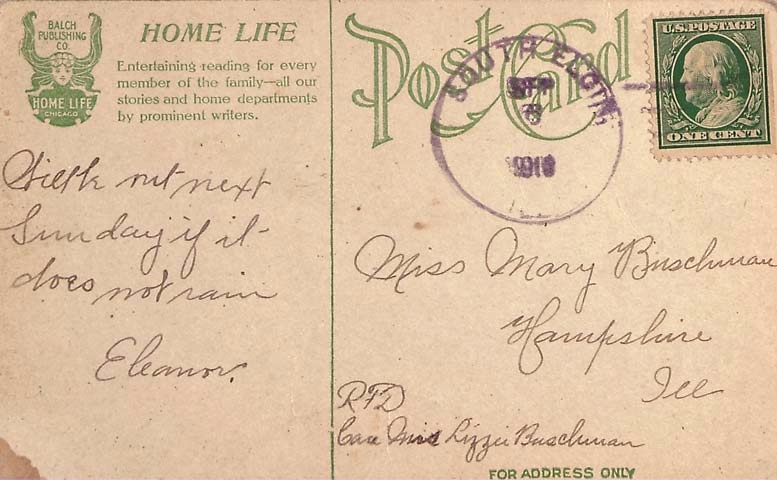 BALCH
PUBLISHING
CO.
HOME LIFE
CHICAGO
HOME LIFE
Entertaining reading for every
member of the family—all our
stories and home departments
by prominent writers.
Post Card
SOUTH ELGIN
SEP
8
1910
ILL
U.S. POSTAGE
ONE CENT
out next
Sunday if it
does not rain
Eleanor.
Miss Mary Buschman
Hampshire
Ill
RFD
Care Miss Lizzie Buschman
FOR ADDRESS ONLY